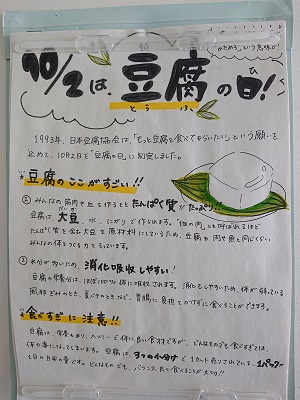 かためる」という意味が!
10/2は、豆腐の日!
とうふ
ひ
1993年、日本豆腐協会は、「もっと豆腐を食べてもらいたい」という願いを
込めて、10月2日を「豆腐の日」に制定しました。
豆腐のここがすごい!!
① みんなの筋肉や血を作るもとたんぱく質がたっぷり!!
豆腐は、大豆、水、にがりで作られます。「畑の肉」とも呼ばれるほど
たんぱく質を含む大豆を原材料にしているため、豆腐も肉や魚と同じくらい
みんなの体をつくる力をもっています。
② 水分が多いため、消化吸収しやすい!
豆腐の栄養分は、ほぼ100%体に吸収されます。消化もしやすいため、体が弱っている
風邪ぎみのとき、夏バテのときなど、胃腸に負担をかけずに食べることができます。
食べすぎに注意!!
豆腐は、栄養もあり、ヘルシーで体に良い食材ですが、どんなものでも食べすぎては
体の毒になってしまいます。豆腐は3つの小分けで1セット売りされていて、1パックが
1日の目安の量です。どんなものでも、バランス良く食べることが大切!!